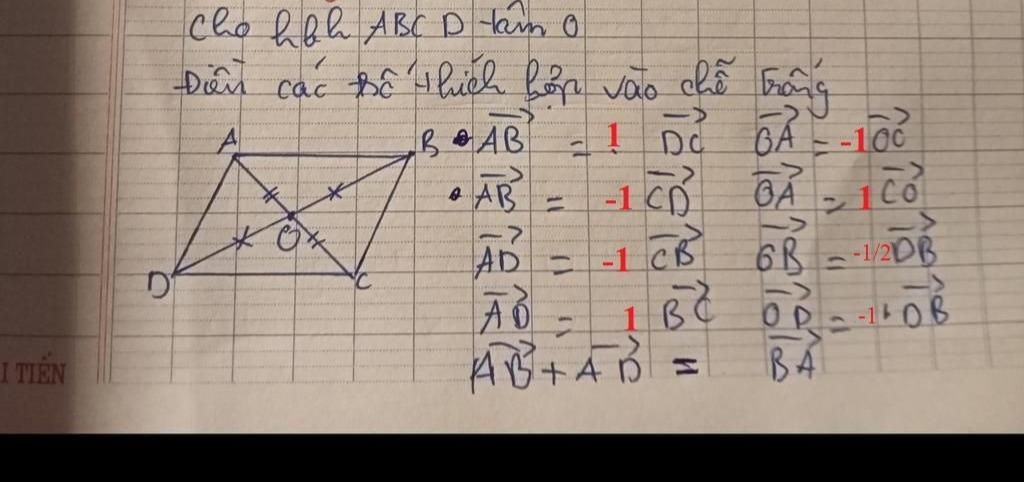 Cho hbh ABCD tâm O
Điền các số thích hợp vào chỗ trống
A
B
O
D
C
• →AB = 1 →DC →OA = -1 →OC
• →AB = -1 →CD →OA = 1 →CO
→AD = -1 →CB →OB = -1/2 →DB
→AD = 1 →BC →OD = -1 →OB
→AB + →AD = →BA
I TIẾN